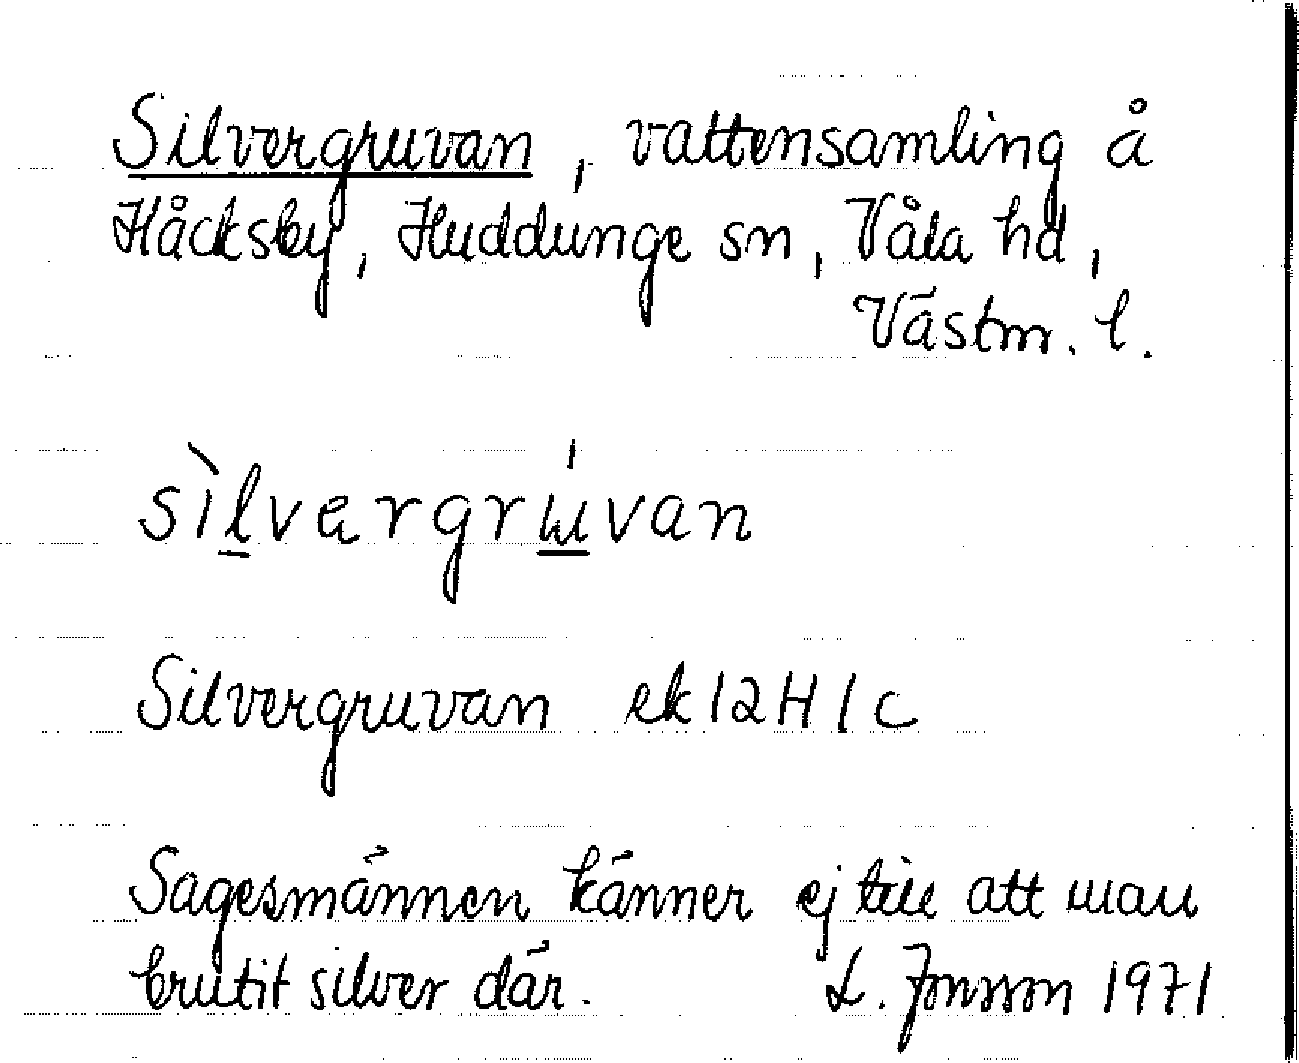 Silvergruvan, vattensamling å
Håcksby, Huddunge sn, Våla hd,
Västm. l.
sìlvergrúvan
Silvergruvan ek 12H 1c
Sagesmännen känner ej till att man
brutit silver där. L. Jonsson 1971